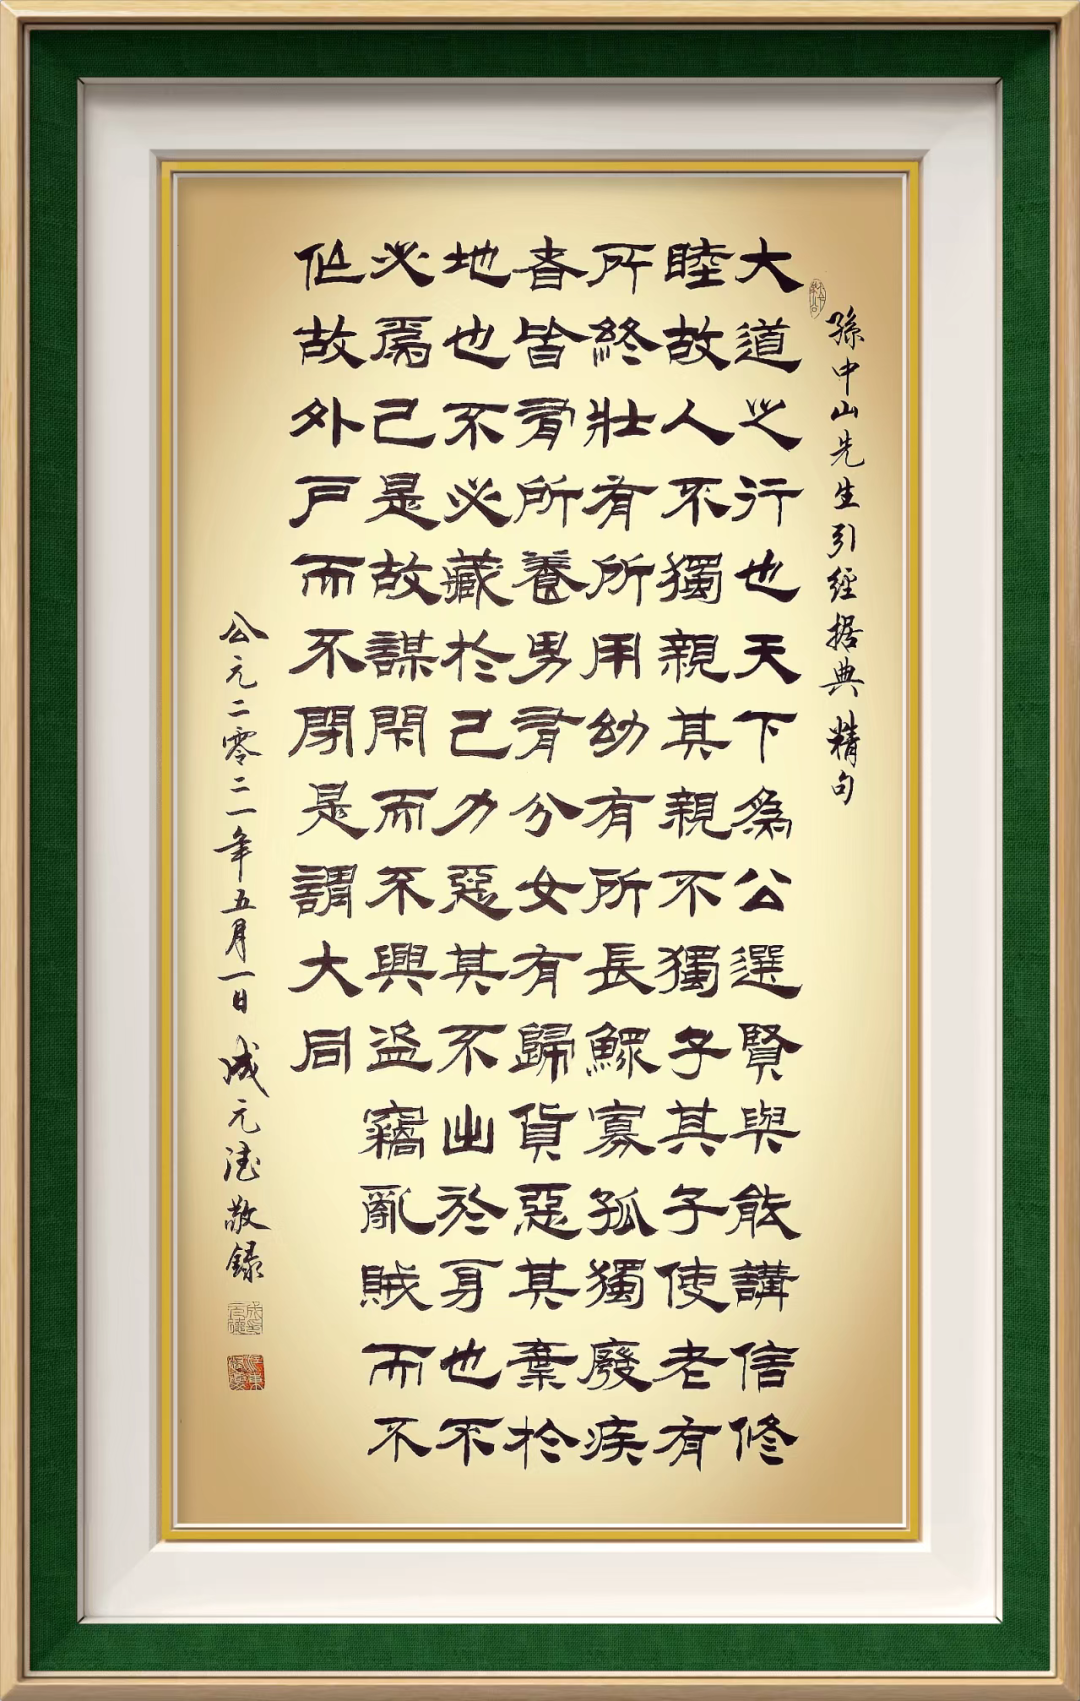 孫中山先生引經据典精句
大道之行也天下為公選賢與能講信修
睦故人不獨親其親不獨子其子使老有
所終壯有所用幼有所長鰥寡孤獨廢疾
者皆有所養男有分女有歸貨惡其棄於
地也不必藏於己力惡其不出於身也不
必爲己是故謀閉而不興盜竊亂賊而不
作故外戶而不閉是謂大同
公元二零二一年五月一日成元德敬録